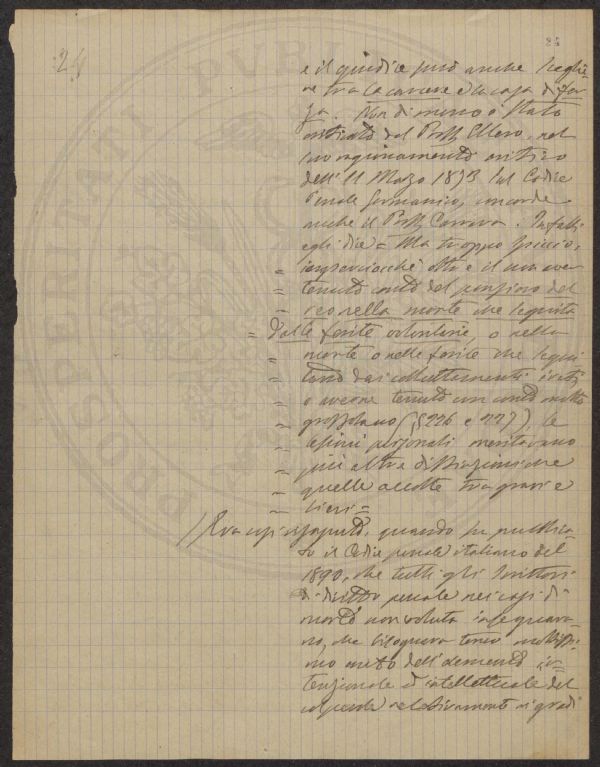 24
84
e il giudice può anche scegli=
re tra la carcere e la casa di for
za. Non di meno è stato
criticato dal Prof. Ellero, nel
suo ragionamento critico
dell' 11 Marzo 1873 sul Codice
Penale Germanico, concorde
anche il Prof. Carrara. Infatti
egli dice = Ma troppo spiccio,
imperciocchè oltre il non aver
= tenuto conto del
= reo nella morte che seguita
= dalle ferite volontarie, o nella
= morte o nelle ferite che segui
= tano dai
= o averne tenuto un conto molto
= grossolano (§ 226 e 227), le
= lesioni personali meritavano
= più altre distinzioni che
= quelle accolte tra gravi e
= lievi =
Era cosi risaputo, quando fu pubblica
to il Codice penale italiano del
1890, che tutti gli scrittori
di diritto penale nei casi di
morte non voluta insegnava=
no, che bisognava tener moltissi=
mo conto dell'elemento in=
tenzionale ed intellettuale del
colpevole relativamente ai gradi